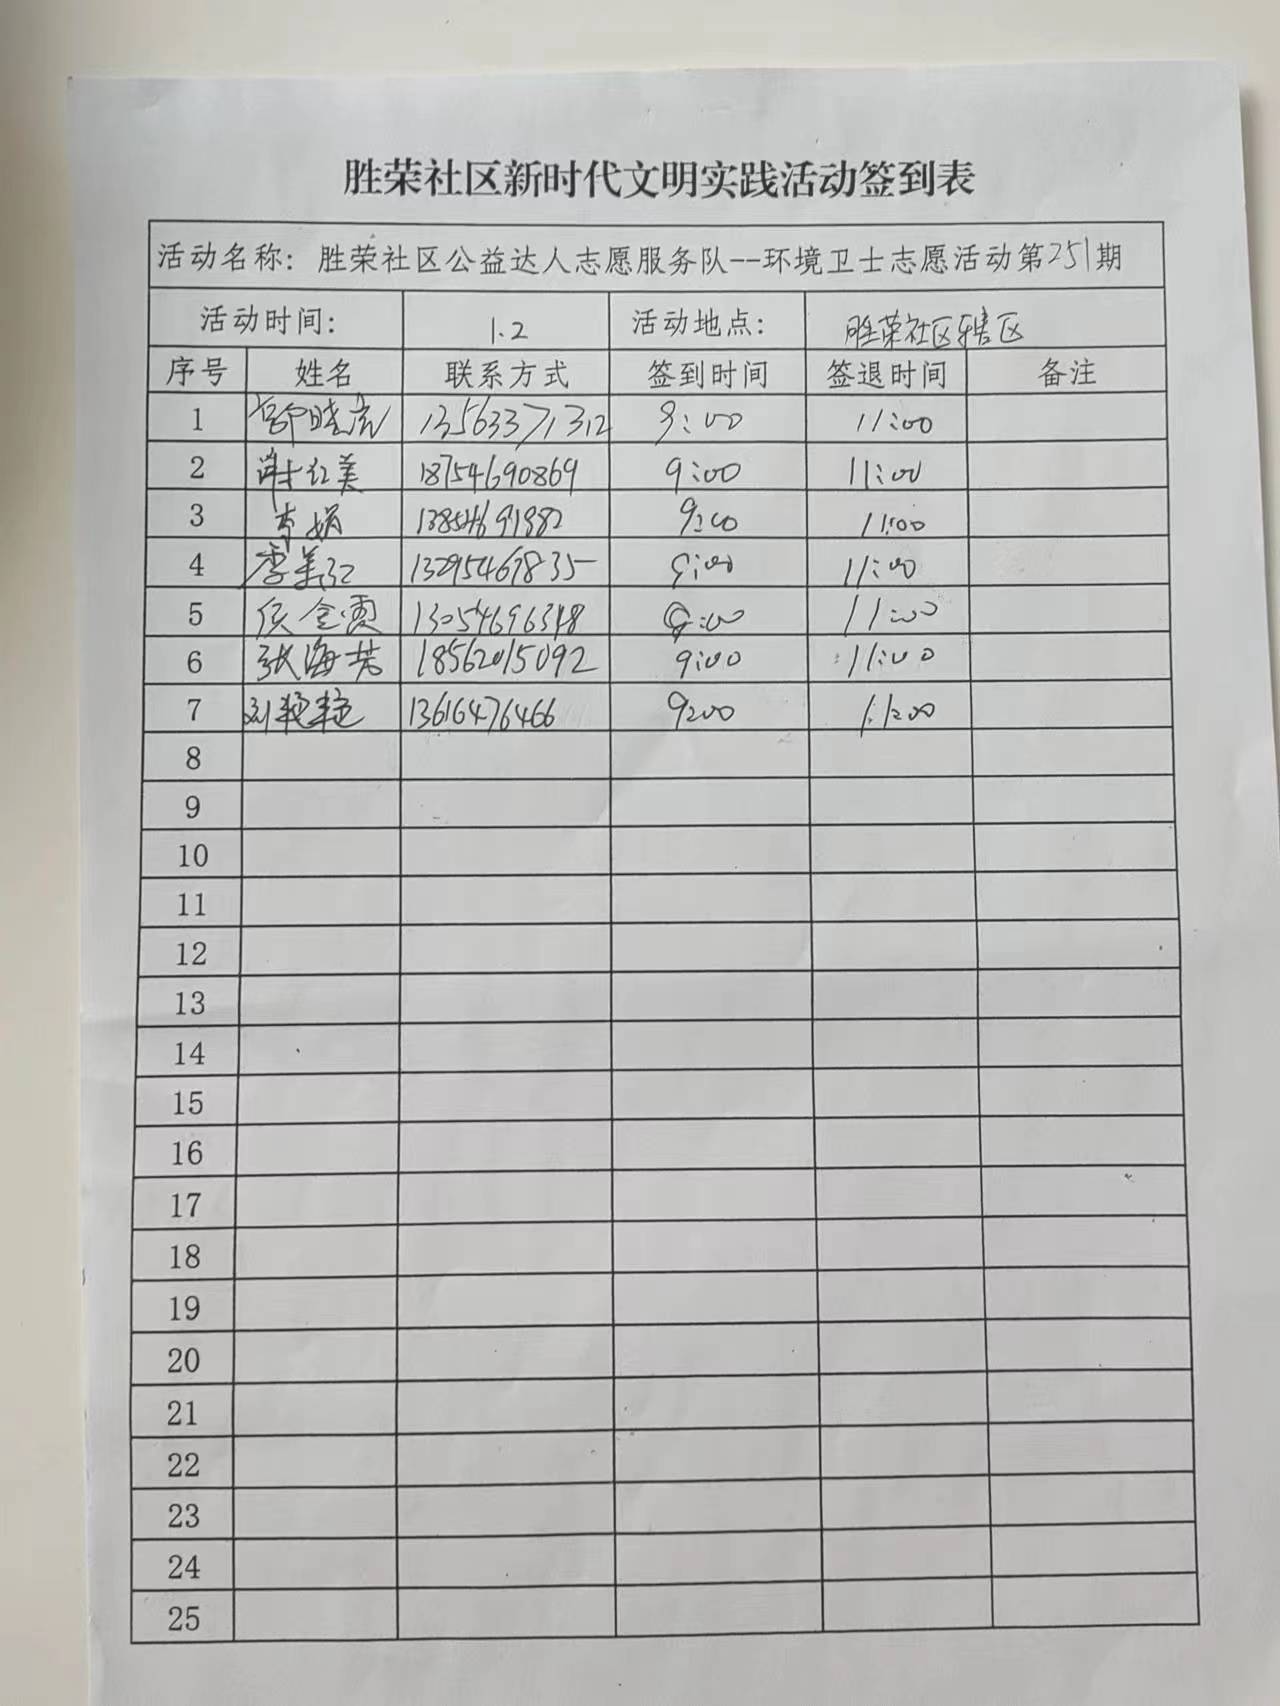 胜荣社区新时代文明实践活动签到表
活动名称：胜荣社区公益达人志愿服务队--环境卫士志愿活动第251期
活动时间： 1.2 活动地点： 胜荣社区辖区
序号 姓名 联系方式 签到时间 签退时间 备注
1 13563371312 9:00 11:00
2 谢红美 18754690869 9:00 11:00
3 李娟 9:00 11:00
4 李美红 9:00 11:00
5 侯金霞 13054696348 9:00 11:00
6 张海芳 18562015092 9:00 11:00
7 刘艳艳 13616476466 9:00 11:00
8
9
10
11
12
13
14
15
16
17
18
19
20
21
22
23
24
25